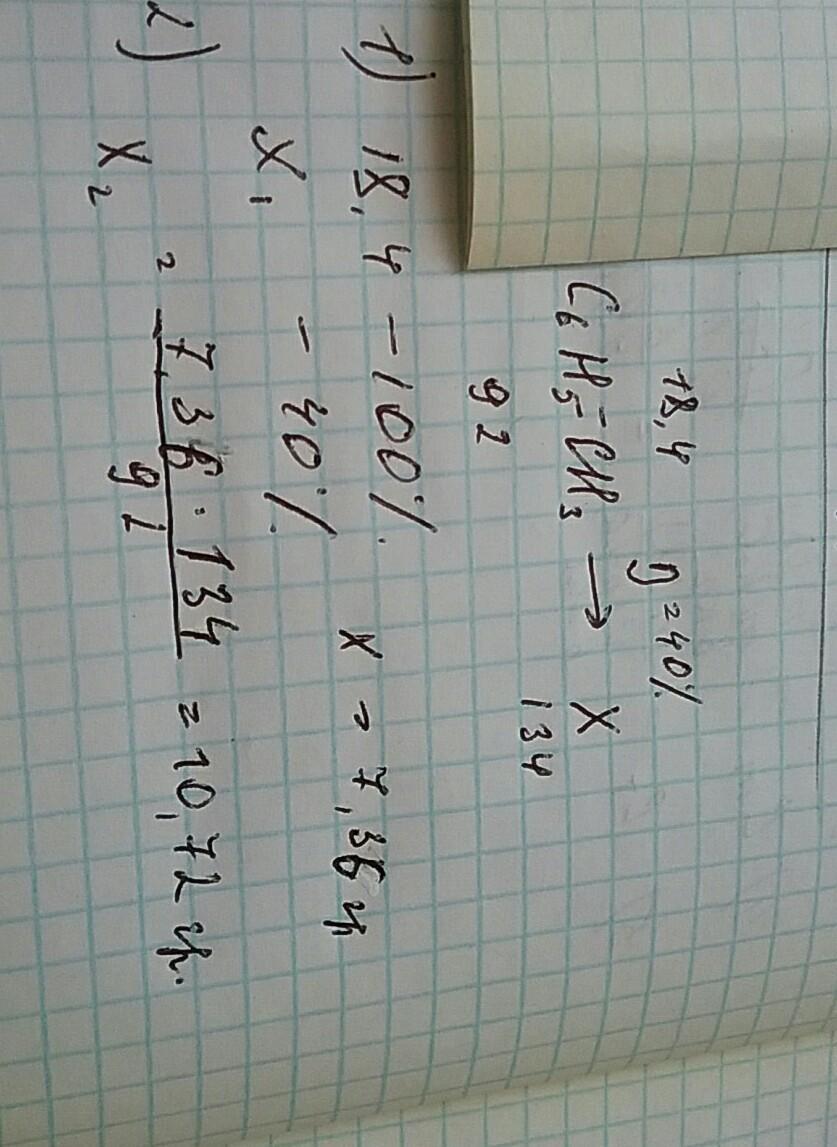 18,4 η=40%
C₆H₅-CH₃ → X
92 134
1) 18,4 - 100% x = 7,36 гр
X₁ - 40%
2) X₂ = 7,36 · 134 / 92 = 10,72 гр.